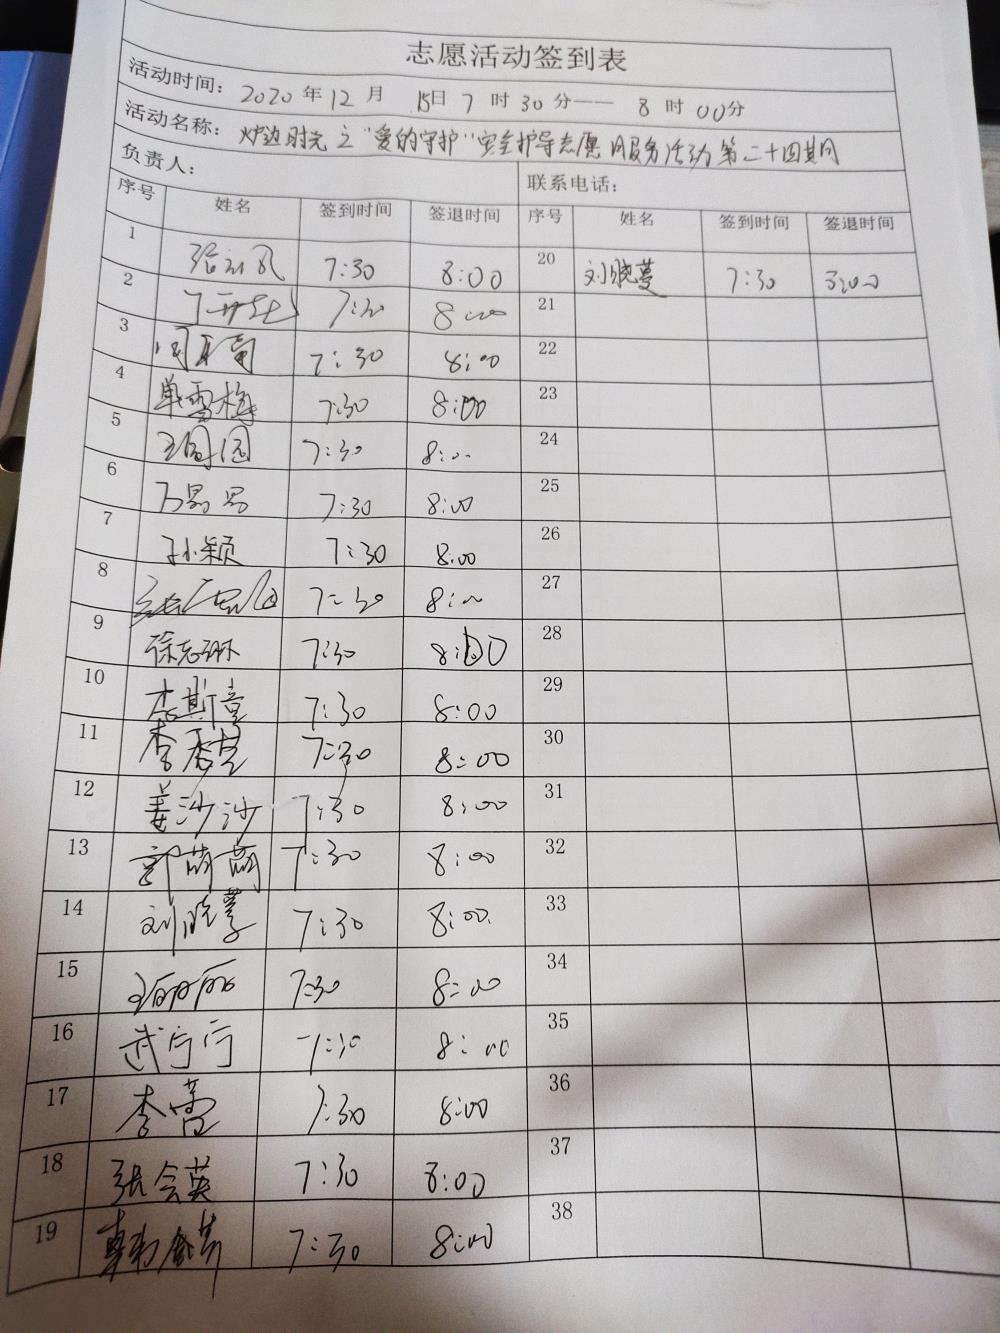 志愿活动签到表
活动时间： 2020 年 12 月 15日 7 时 30 分—— 8 时 00分
活动名称： 炉边时光之"爱的守护"安全护导志愿服务活动第二十四期
负责人： 联系电话：
序号 姓名 签到时间 签退时间 序号 姓名 签到时间 签退时间
1 7:30 8:00 20 刘晓蔓 7:30 8:00
2 7:30 8:00 21
3 7:30 8:00 22
4 单雪梅 7:30 8:00 23
5 王圆园 7:30 8:00 24
6 7:30 8:00 25
7 孙小颖 7:30 8:00 26
8 7:30 8:00 27
9 徐志琳 7:30 8:00 28
10 李斯童 7:30 8:00 29
11 李秀芝 7:30 8:00 30
12 姜沙沙 7:30 8:00 31
13 郭萌萌 7:30 8:00 32
14 7:30 8:00 33
15 王丽丽 7:30 8:00 34
16 武宁宁 7:30 8:00 35
17 李蕾 7:30 8:00 36
18 张会英 7:30 8:00 37
19 7:30 8:00 38